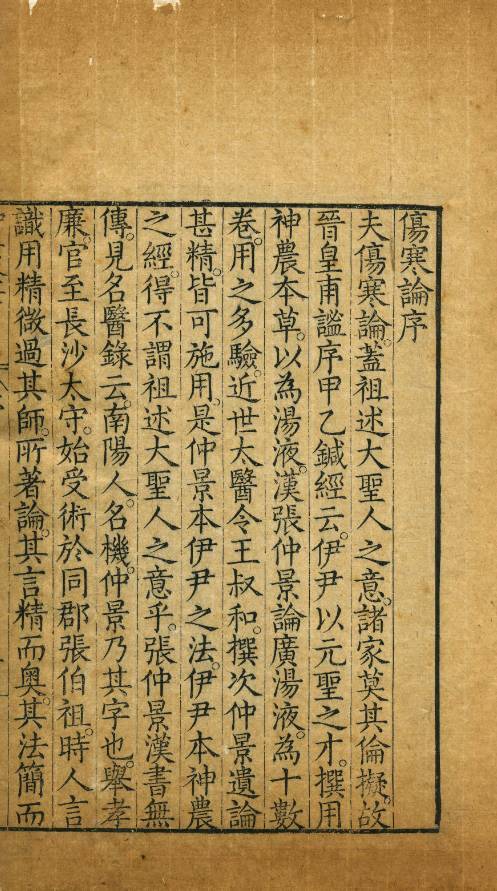 傷寒論序
夫傷寒論。蓋祖述大聖人之意。諸家莫其倫擬。故
晉皇甫謐序甲乙鍼經云。伊尹以元聖之才。撰用
神農本草。以為湯液。漢張仲景論廣湯液。為十數
卷。用之多驗。近世太醫令王叔和。撰次仲景遺論
甚精。皆可施用。是仲景本伊尹之法。伊尹本神農
之經。得不謂祖述大聖人之意乎。張仲景漢書無
傳。見名醫錄云。南陽人。名機。仲景乃其字也。舉孝
廉。官至長沙太守。始受術於同郡張伯祖。時人言
識用精微過其師。所著論。其言精而奧。其法簡而